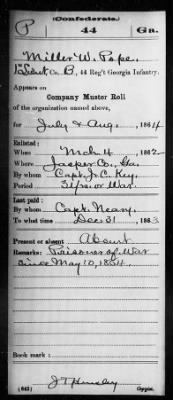 (Confederate.)
P 44 Ga.
Miller W. Pope
1st Lieut, Co. B, 44 Reg't Georgia Infantry.
Appears on
Company Muster Roll
of the organization named above,
for July & Aug, 1864
Enlisted:
When Mch 4, 1862
Where Jasper Co, Ga.
By whom Capt. J. C. Key
Period 3 yrs or War
Last paid:
By whom Capt. Neary
To what time Dec 31, 1863
Present or absent Absent
Remarks: Prisoner of War
since May 10, 1864.
Book mark:
(642)
Copyist.